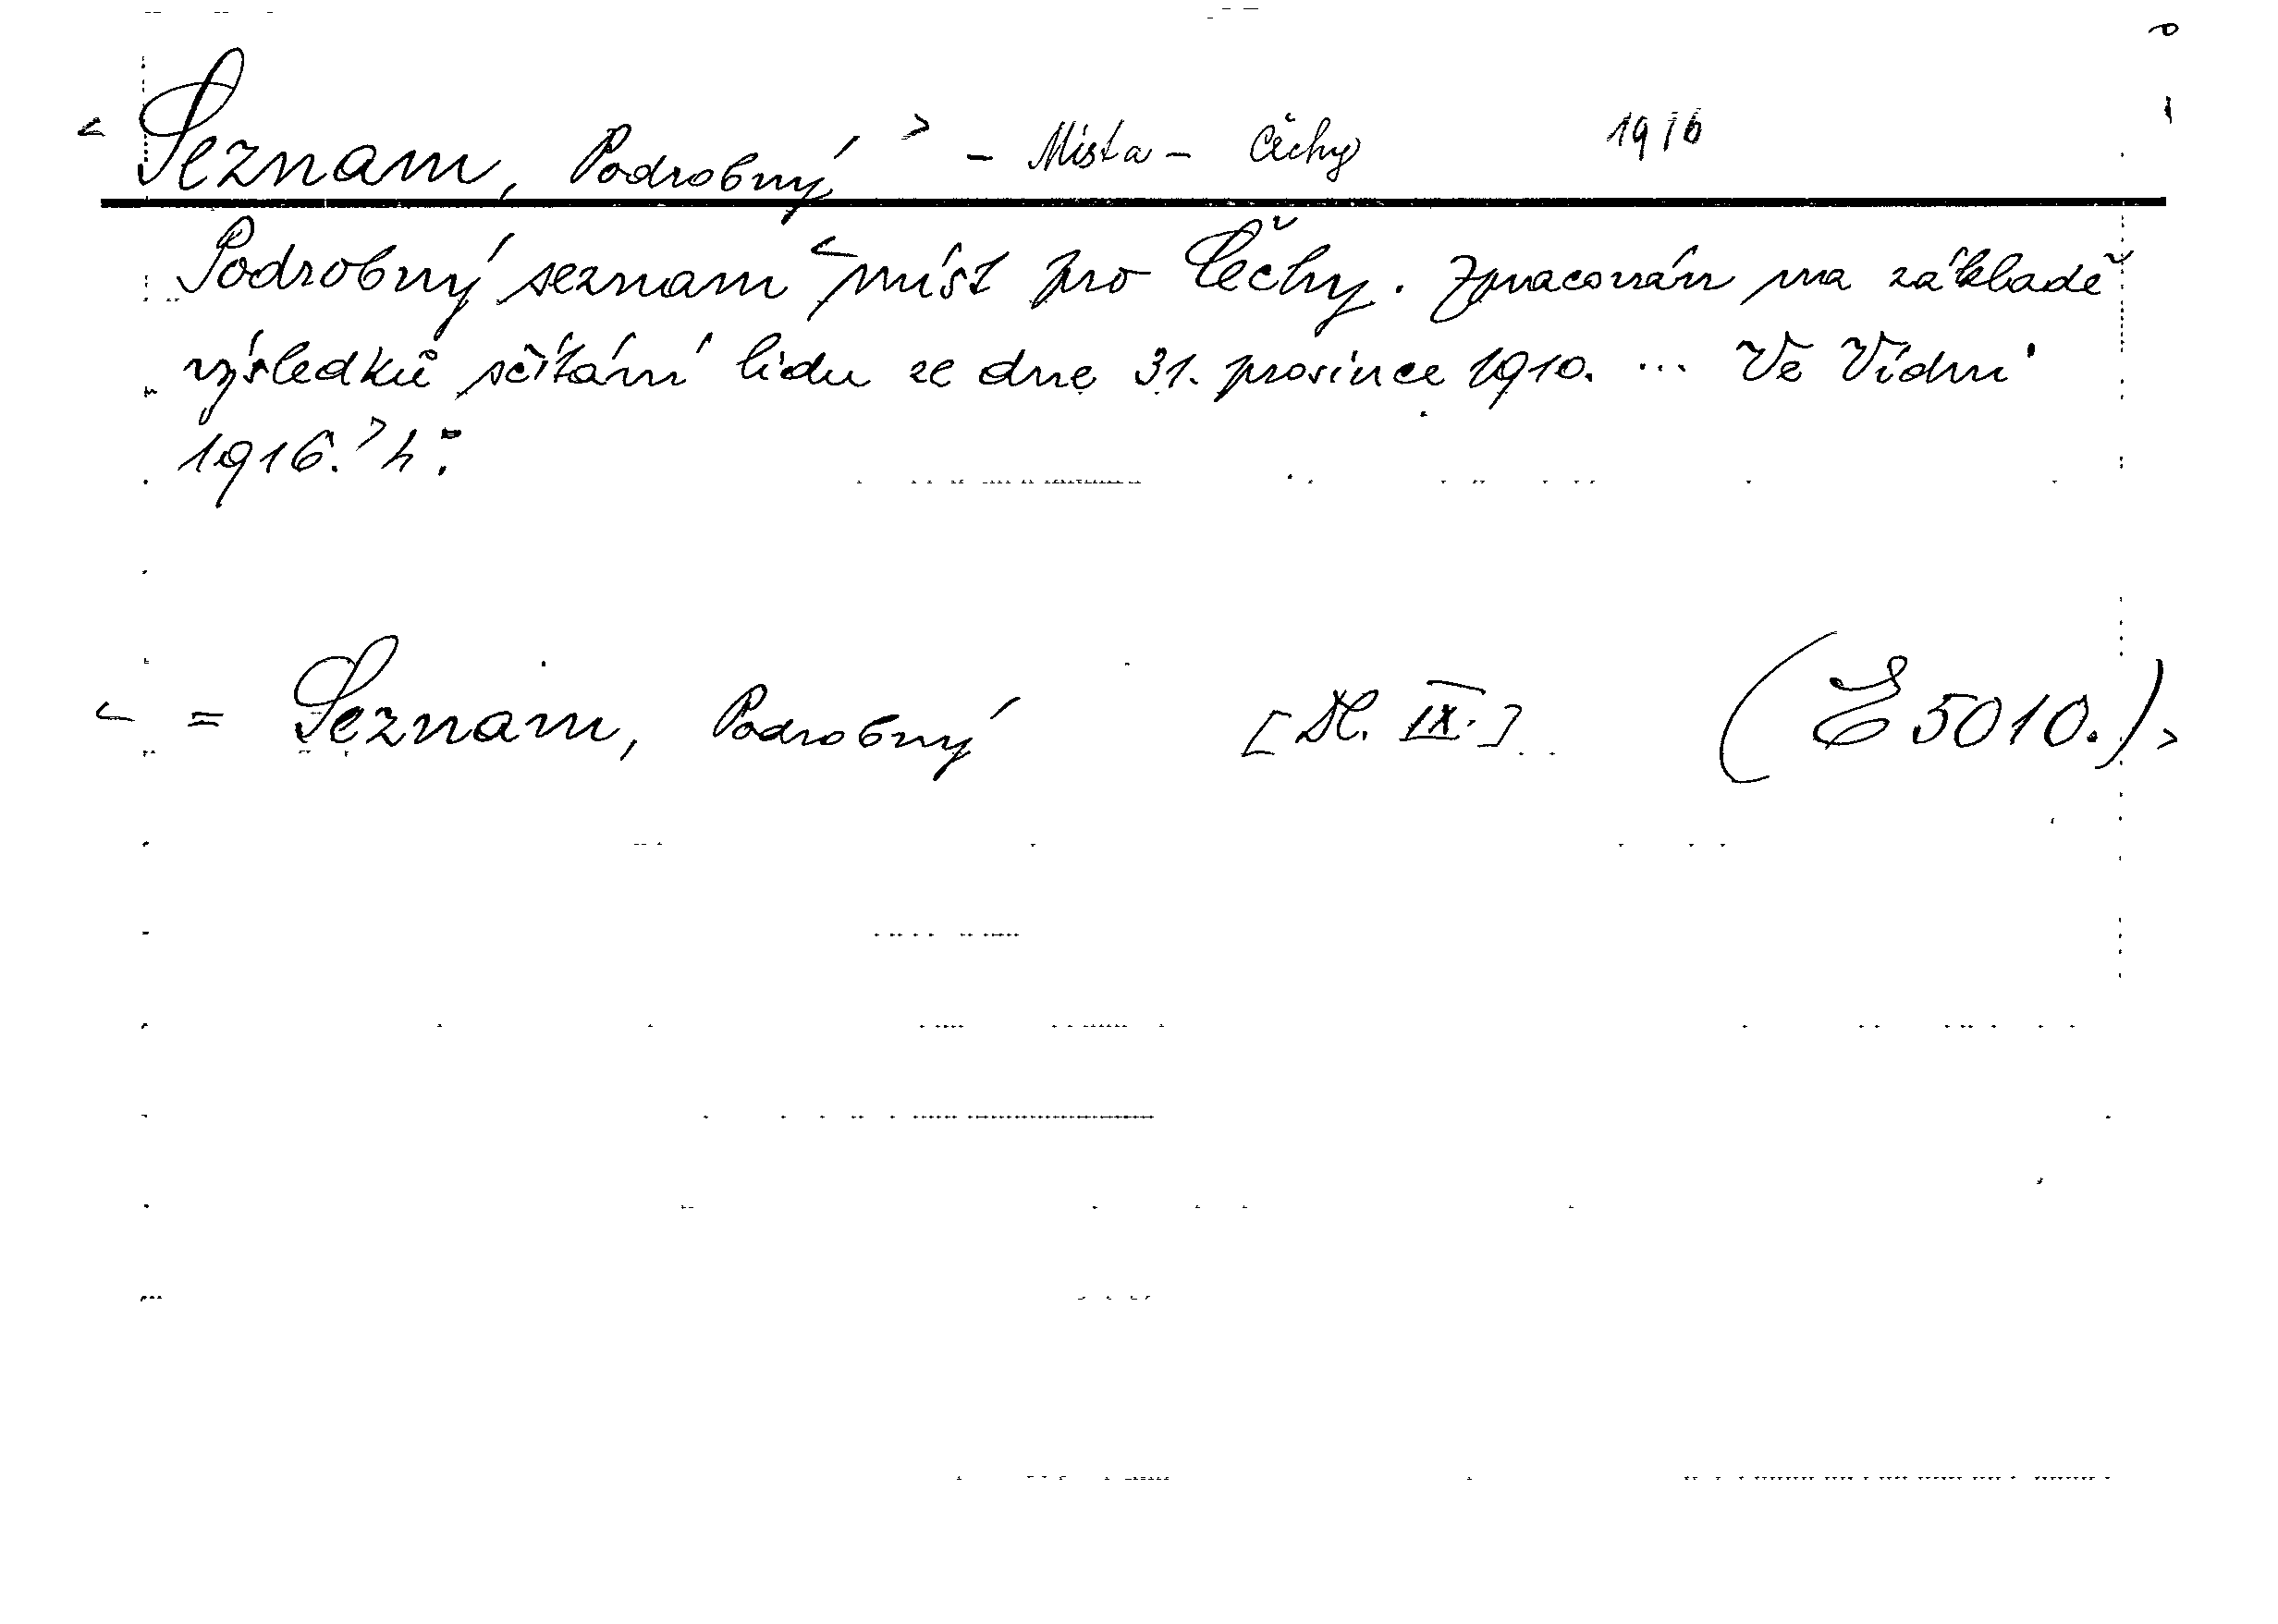 < Seznam, Podrobný > - Místa - Čechy 1916
Podrobný seznam <míst pro Čechy. Zpracován na základě
výsledků sčítání lidu ze dne 31. prosince 1910. ... Ve Vídni
1916.> 4°.
< = Seznam, Podrobný [Dl. IX.] (E 5010.) >